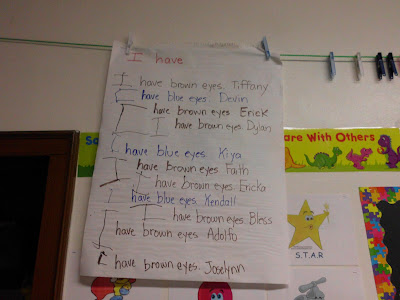 I have
I have brown eyes. Tiffany
I have blue eyes. Devin
I have brown eyes. Erick
I have brown eyes Dylan
I have blue eyes. Kiya
I have brown eyes. Faith
I have Brown eyes. Ericka
I have blue eyes. Kendall
I have brown eyes. Bless
I have brown eyes. Adolfo
I have brown eyes. Joselynn
are With Others
S.T.A.R